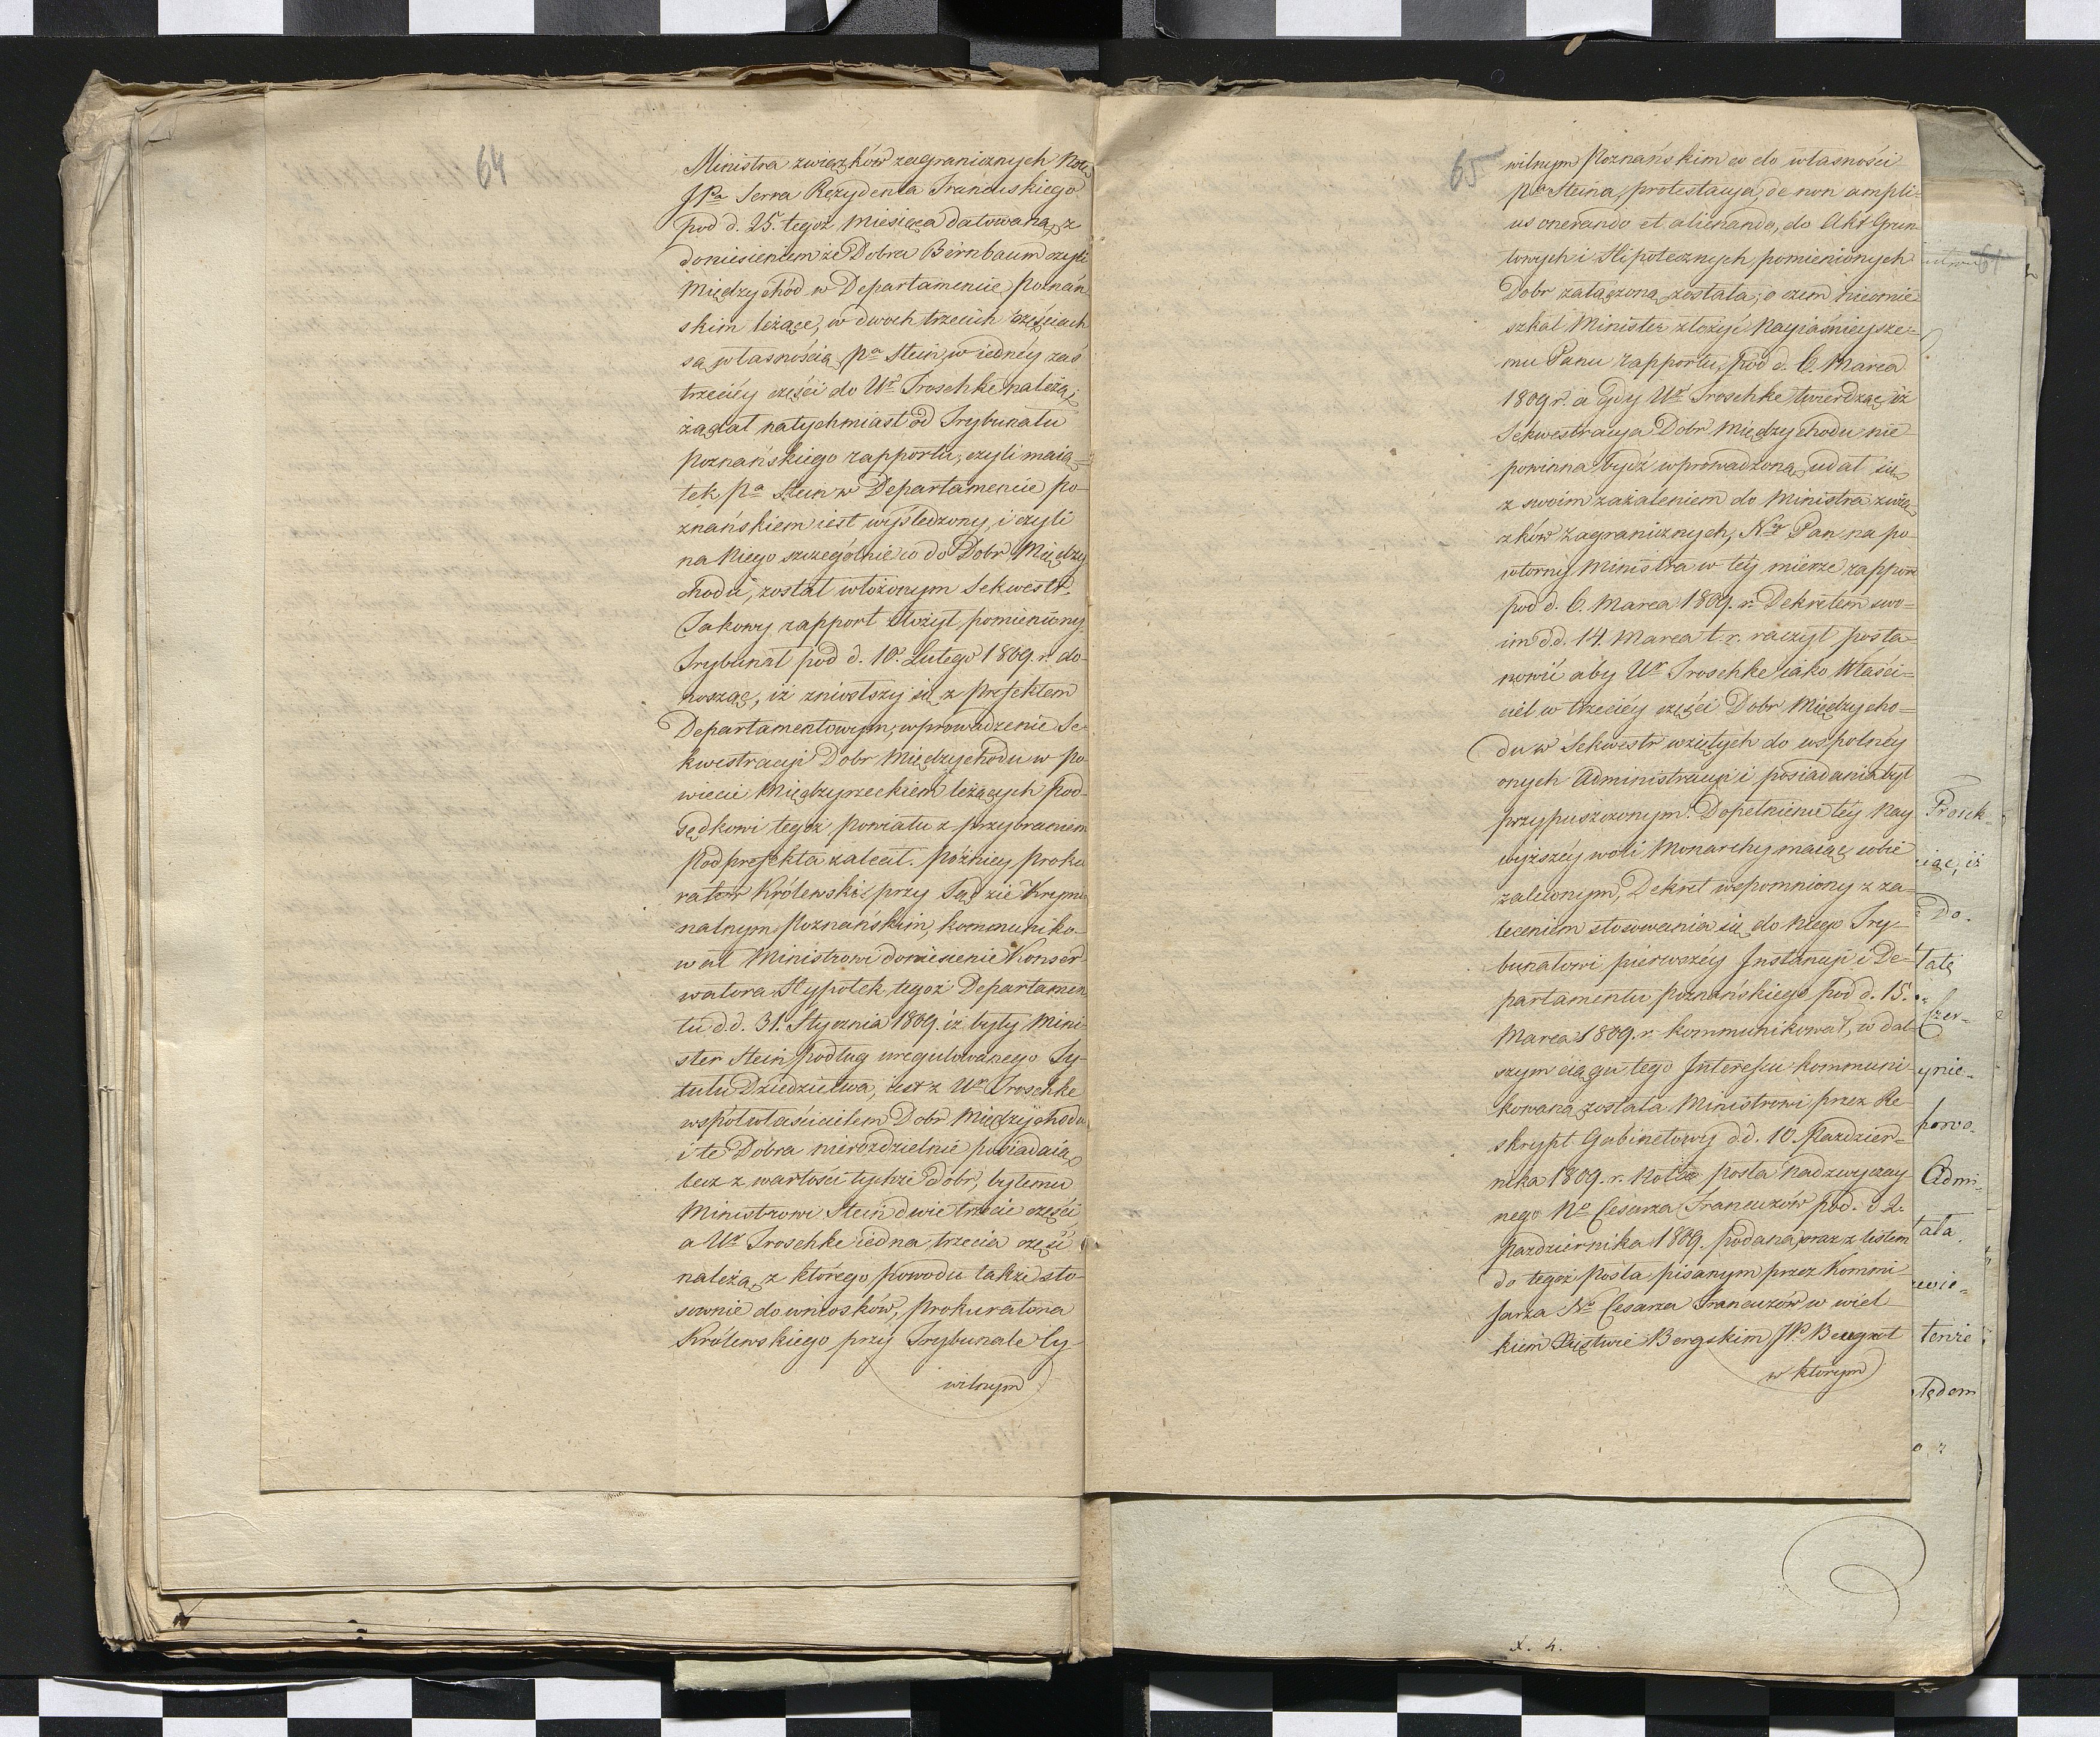 64
Ministra związków zagranicznych Notę
JPa Serra Rezydenta Francuskiego
pod d. 25. tegoż Miesiąca datowaną, z
doniesieniem że Dobra Birnbaum czyli
Międzychód w Departamencie Poznań
skim leżące, w dwoch trzecich częściach
są własnością Pa Stein, w iednéy zaś
trzeciéy części do Ur Troschke należą,
żądał natychmiast od Trybunału
Poznańskiego rapportu, czyli maią=
tek Pa Stein w Departamencie po-
znańskiem iest wyśledzony, i czyli
na niego szczegolnie co do Dobr Między
chodu, został włożonym Sekwestr.
Jakowy rapport złożył pomieniony
Trybunał pod d. 10. Lutego 1809. r. do-
nosząc, iż zniosłszy się z Prefektem
Departamentowym, wprowadzenie Se-
kwestracyi Dobr Międzychodu w Po
wiecie Międzyrzeckiem leżących Pod-
sędkowi tegoż powiatu z przybraniem
Podprefekta zalecił. Poźniey Proku
rator Królewski przy Sądzie Krymi
nalnym Poznańskim, kommuniko-
wał Ministrowi doniesienie Konser-
watora Hypotek tegoż Departamen
tu d.d. 31. Stycznia 1809. iż były Mini-
ster Stein podług uregulowanego Ty-
tułu Dziedzictwa, iest z Ur Troschke
współwłaścicielem Dobr Międzychodu
i te Dobra nierozdzielnie posiadaią,
lecz z wartości tychże Dobr, byłemu
Ministrowi Stein dwie trzecie części
a Ur Troschke iedna trzecia część
należą, z którego powodu także sto-
sownie do wniosków, Prokuratora
Królewskiego przy Trybunale Cy-
wilnym
65
wilnym Poznańskim co do własności
Pa Steina, protestacya, de non ampli-
us onerando et alienando, do Akt Grun
towych i Hipotecznych pomienionych
Dobr załączoną została; o czem nieomie
szkał Minister złożyć Nayiaśnieysze=
mu Panu rapportu, pod d. 6. Marca
1809 r. a gdy Ur Troschke twierdząc, iż
Sekwestracya Dobr Międzychodu nie
powinna bydź wprowadzoną, udał się
z swoim zażaleniem do Ministra zwią
zków Zagranicznych, Nay Pan na po-
wtorny Ministra w tey mierze rapport
pod d. 6. Marca 1809. r. Dekretem swo=
im d.d. 14. Marca t. r. raczył posta-
nowić aby Ur Troschke iako Właści=
ciel w trzeciéy części Dobr Międzycho=
du w Sekwestr wziętych do wspolnéy
onych Administracyi i posiadania był
przypuszczonym. Dopełnienie téy Nay
wyższéy woli Monarchy maiąc sobie
zaleconym, Dekret wspomniony z za-
leceniem stosowania się do niego Try-
bunałowi pierwszéy Instancyi i De-
partamentu poznańskiego pod d. 15.
Marca 1809. r. kommunikował, w dal-
szym ciągu tego Interessu kommuni-
kowaną została Ministrowi przez Re-
skrypt Gabinetowy d.d. 10. Pazdzier-
nika 1809. r. Nota Posła Nadzwyczay-
nego No Cesarza Francuzów pod d. 2.
Pazdziernika 1809. podana, wraz z listem
do tegoż Posła pisanym przez Kommi-
ssarza No Cesarza Francuzów w wiel-
kiem Xięstwie Bergskim JPo Beugnot
w ktorym
61
Prosek=
iąc, iż
Do.
tatę
Czer=
ynie=
porwo.
Admi=
tała
wie=
tenże
lędem
o z
X. 4.